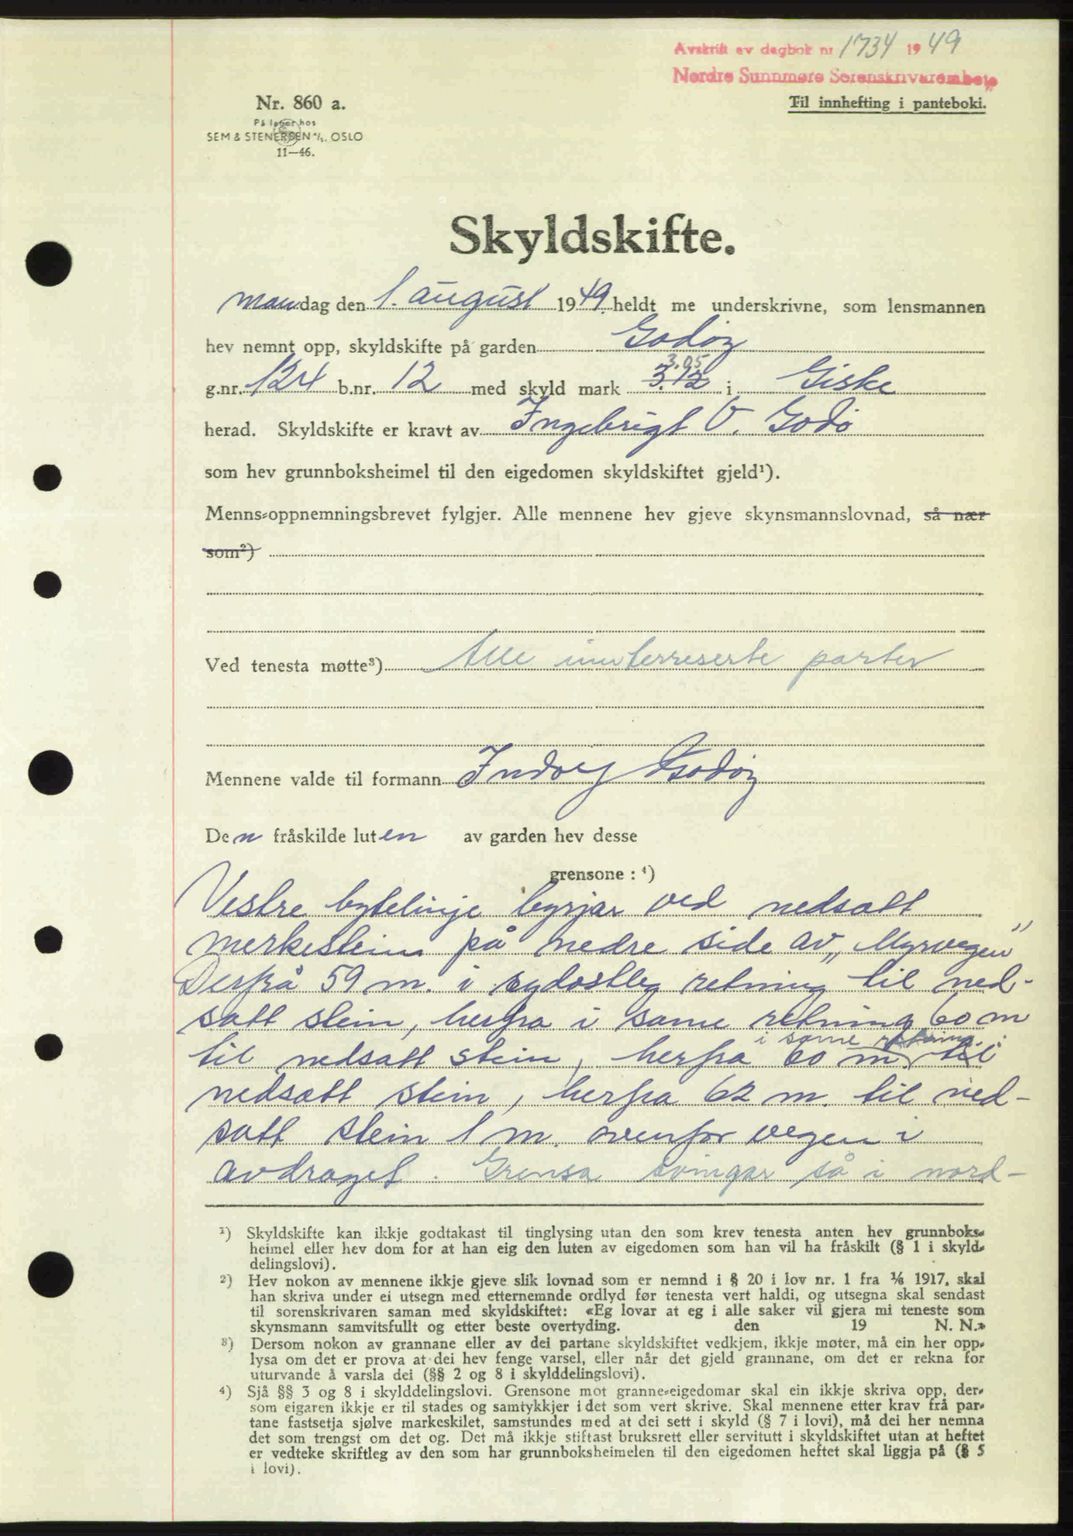 Avskrift av dagbok nr 1734 1949
Nordre Sunnmøre Sorenskrivarembete
Nr. 860 a.
Til innhefting i panteboki.
På lager hos
SEM & STENERSEN A/S. OSLO
11—46.
Skyldskifte.
mandag den 1. august 1949 heldt me underskrivne, som lensmannen
hev nemnt opp, skyldskifte på garden Godøy
3.05
g.nr. 124 b.nr. 12 med skyld mark 3.12 i Giske
herad. Skyldskifte er kravt av Ingebrigt V. Godø
som hev grunnboksheimel til den eigedomen skyldskiftet gjeld¹).
Menns-oppnemningsbrevet fylgjer. Alle mennene hev gjeve skynsmannslovnad, så nær
som²)
Ved tenesta møtte³) Alle innterreserte parter
Mennene valde til formann Indrey Godøy
Den fråskilde luten av garden hev desse
grensone: ⁴)
Vestre bytelinje byrjar ved nedsatt
merkestein på nedre side av „Myrvegen"
Derfrå 59 m. i sydostleg retning til ned-
satt stein, herfra i same retning 60 m
i same retning
til nedsatt stein, herfra 60 m. til
nedsatt stein, herfra 62 m. til ned-
satt stein 1 m. ovenfor vegen i
avdraget. Grensa svingar så i nord-
¹) Skyldskifte kan ikkje godtakast til tinglysing utan den som krev tenesta anten hev grunnboks-
heimel eller hev dom for at han eig den luten av eigedomen som han vil ha fråskilt (§ 1 i skyld-
delingslovi).
²) Hev nokon av mennene ikkje gjeve slik lovnad som er nemnd i § 20 i lov nr. 1 fra 1/6 1917, skal
han skriva under ei utsegn med etternemnde ordlyd før tenesta vert haldi, og utsegna skal sendast
til sorenskrivaren saman med skyldskiftet: «Eg lovar at eg i alle saker vil gjera mi teneste som
skynsmann samvitsfullt og etter beste overtyding. den 19 N. N.»
³) Dersom nokon av grannane eller av dei partane skyldskiftet vedkjem, ikkje møter, må ein her opp-
lysa om det er prova at dei hev fenge varsel, eller når det gjeld grannane, om det er rekna for
uturvande å varsla dei (§§ 2 og 8 i skylddelingslovi).
⁴) Sjå §§ 3 og 8 i skylddelingslovi. Grensone mot granne-eigedomar skal ein ikkje skriva opp, der-
som eigaren ikkje er til stades og samtykkjer i det som vert skrive. Skal mennene etter krav frå par-
tane fastsetja sjølve markeskilet, samstundes med at dei sett i skyld (§ 7 i lovi), må dei her nemna
det som trengst om det og. Det må ikkje stiftast bruksrett eller servitutt i skyldskiftet utan at heftet
er vedteke skriftleg av den som har grunnboksheimelen til den eigedomen heftet skal liggja på (§ 5
i lovi).